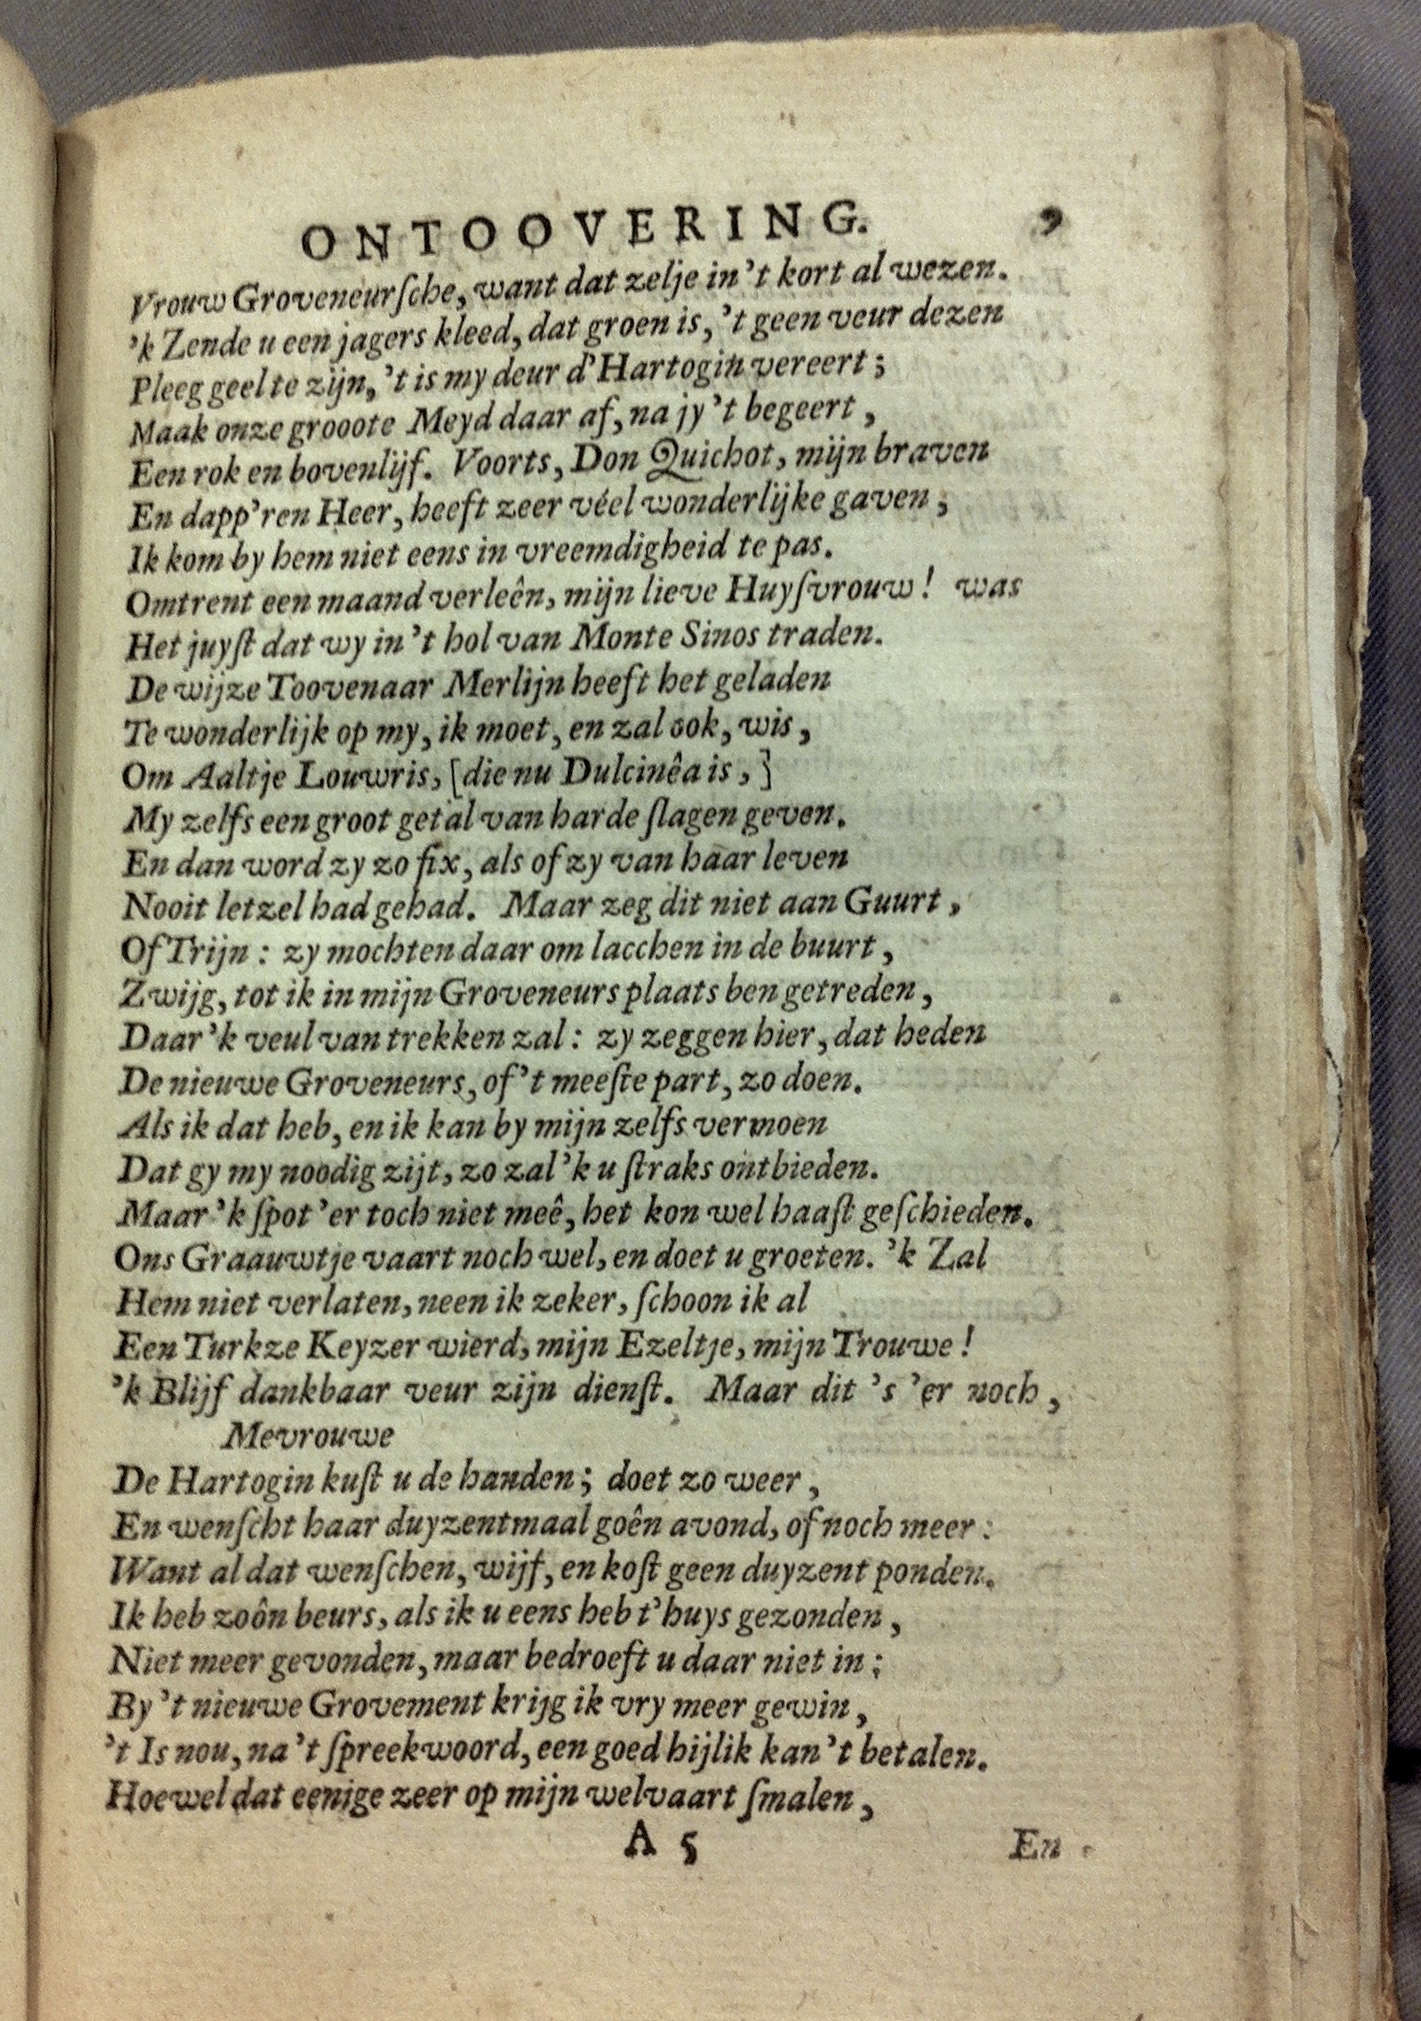 ONTOOVERING. 9
Vrouw Groveneurſche, want dat zelje in 't kort al wezen.
'k Zende u een jagers kleed, dat groen is, 't geen veur dezen
Pleeg geel te zijn, 't is my deur d' Hartogin vereert;
Maak onze grooote Meyd daar af, na jy 't begeert,
Een rok en bovenlijf. Voorts, Don Quichot, mijn braven
En dapp'ren Heer, heeft zeer véel wonderlijke gaven,
Ik kom by hem niet eens in vreemdigheid te pas.
Omtrent een maand verleên, mijn lieve Huyſvrouw! was
Het juyſt dat wy in 't hol van Monte Sinos traden.
De wijze Toovenaar Merlijn heeft het geladen
Te wonderlijk op my, ik moet, en zal ook, wis,
Om Aaltje Louwris, [die nu Dulcinêa is,]
My zelfs een groot getal van harde ſlagen geven.
En dan word zy zo fix, als of zy van haar leven
Nooit letzel had gehad. Maar zeg dit niet aan Guurt,
Of Trijn: zy mochten daar om lacchen in de buurt,
Zwijg, tot ik in mijn Groveneurs plaats ben getreden,
Daar 'k veul van trekken zal: zy zeggen hier, dat heden
De nieuwe Groveneurs, of 't meeſte part, zo doen.
Als ik dat heb, en ik kan by mijn zelfs vermoen
Dat gy my noodig zijt, zo zal 'k u ſtraks ontbieden.
Maar 'k ſpot 'er toch niet meê, het kon wel haaſt geſchieden.
Ons Graauwtje vaart noch wel, en doet u groeten. 'k Zal
Hem niet verlaten, neen ik zeker, ſchoon ik al
Een Turkze Keyzer wierd, mijn Ezeltje, mijn Trouwe!
'k Blijf dankbaar veur zijn dienſt. Maar dit 's 'er noch,
Mevrouwe
De Hartogin kuſt u de handen; doet zo weer,
En wenſcht haar duyzentmaal goên avond, of noch meer:
Want al dat wenſchen, wijf, en koſt geen duyzent ponden.
Ik heb zoôn beurs, als ik u eens heb t' huys gezonden,
Niet meer gevonden, maar bedroeft u daar niet in;
By 't nieuwe Grovement krijg ik vry meer gewin,
't Is nou, na 't ſpreekwoord, een goed hijlik kan 't betalen.
Hoewel dat eenige zeer op mijn welvaart ſmalen,
A 5 En